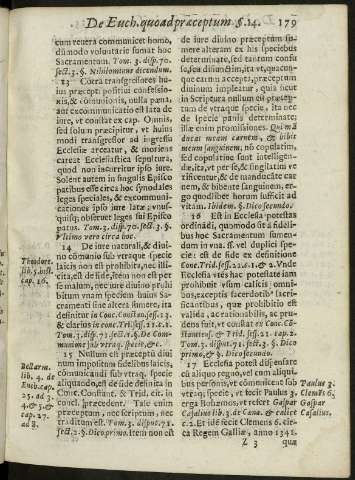 De Euch. quoad præceptum §.14. 179
cum revera communicet homo,
dũmodo voluntarie sumat hoc
Sacramentum. Tom. 3. disp. 70.
sect. 3. §. Nihilominus dicendum.
13 Cõtra transgressores hu-
ius præcepti positivi confessio-
nis, & communionis, nulla pæna,
aut excommunicatio est lata de
iure, vt constat ex cap. Omnis,
sed solum præcipitur, vt huius
modi transgressor ad ingressu
Ecclesiæ arceatur, & moriens
careat Ecclesiastica sepultura,
quod non incurritur ipso iure.
Solent autem in singulis Episco
patibus esse circa hoc synodales
leges speciales, & excommuni-
cationes ipso iure latæ; vnus-
quisq; observet leges sui Episco
patus. Tom. 3. disp. 70. sect. 3. §.
Vltimo vero circa hoc.
14 De iure naturali, & divi
no cõmunio sub vtraque specie
laicis non est prohibita, nec illi-
cita, est de fide, item non est per
se malum, nec iure divino prohi
bitum vnam speciem huius Sa-
cramenti sine altera sumere, ita
definitur in Conc. Constan. sess. 13.
& clarius in conc. Trid. sess. 21. c. 1.
Tom. 3. disp. 71. sect. 1. §. De Com-
munione sub vtraq. specie, & c.
15 Nullum est præceptũ divi
num impositum fidelibus laicis,
communicandi sub vtraq. specie
aliquando, est de fide definita in
Conc. Constant. & Trid. cit. in
concl. præcedent. Tale enim
præceptum, nec scriptum, nec
traditum est. Tom. 3. disput. 71.
sect. 2. §. Dico primo. Item non est
Theodore.
lib. 5. hist.
cap. 16.
Bellarm.
lib. 4. de
Euch. cap.
25. ad 3.
4. & 5. &
cap. 27.
ad 8.
de iure divino præceptum su-
mere alteram ex his speciebus
determinate, sed tantum confu
se, seu disiunctim, ita vt, quacun-
que earum accepta, præceptum
divinum impleatur, quia sicut
in Scriptura nullum est præcep-
tum de vtraque specie, ita nec
de specie panis determinate;
illæ enim promissiones. Qui mã
ducat meam carnem, & bibit
meum sanguinem, nõ copulatim,
sed copulative sunt intelligen-
dæ, ita, vt per se, & singulatim ve
rificentur, & de manducãte car
nem, & bibente sanguinem, er-
go quodlibet horum sufficit ad
vitam. Ibidem. §. Dico secundo.
16 Est in Ecclesia potestas
ordinãdi, quomodo sit à fideli-
bus hoc Sacramentum sumen-
dum in vna. ss. vel duplici spe-
cie: est de fide ex definitione
Conc. Trid. sess. 21. c. 1. & 2. Vnde
Ecclesia vtẽs hac potestate iam
prohibuit vsum calicis, omni-
bus, exceptis sacerdotibus sacri-
ficantibus, quæ prohibitio est
valida, ac rationabilis, ac pru-
dens fuit, vt constat ex Conc. Cõ-
stantiens, & Trid. sess. 21. cap. 2.
Tom. 3. disput. 71. sect. 2. §. Dico
primo, & §. Dico secundo.
17 Ecclesia potest dispensare
ex aliquo regno, vel cum aliqui-
bus personis, vt cõmunicẽt sub
vtraq; specie, vt fecit Paulus 3.
erga Bohæmos, vt refert Gaspar
Casalius lib. 3. de Cæna. & calice
c. 2. Et idẽ fecit Clemens 6. cir-
ca Regem Galliæ, anno 1342.
Paulus 3.
Clemẽs 6.
Gaspar
Casalius.
Z 3 qua